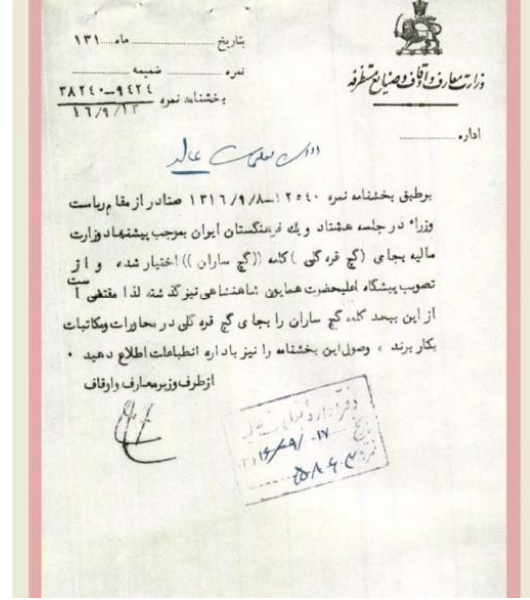 وزارت معارف و اوقاف و صنایع مستظرفه
اداره
بتاریخ ماه ۱۳۱
نمره ضمیمه
بخشنامه نمره ۹۴۲۴-۳۸۲۴۰
۱۶/۹/۱۳
برطبق بخشنامه نمره ۱۲۵۴۰-۱۳۱۶/۹/۸ صادر از مقام ریاست
وزراء در جلسه هشتاد و یك فرهنگستان ایران بموجب پیشنهاد وزارت
مالیه بجای (گچ قره گلی) کلمه ((گچ ساران)) اختیار شده و از
تصویب پیشگاه اعلیحضرت همایون شاهنشاهی نیز گذشته لذا مقتضی است
از این ببعد کلمه گچ ساران را بجای گچ قره گلی در محاورات ومکاتبات
بکار برند ، وصول این بخشنامه را نیز باداره انطباعات اطلاع دهید .
ازطرف وزیرمعارف واوقاف